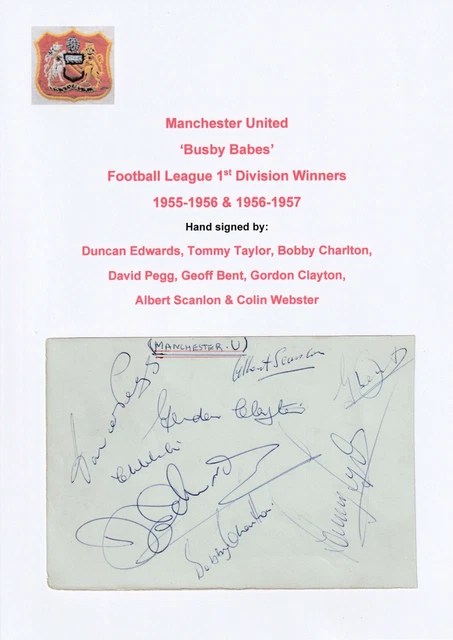 Manchester United
‘Busby Babes’
Football League 1st Division Winners
1955-1956 & 1956-1957
Hand signed by:
Duncan Edwards, Tommy Taylor, Bobby Charlton,
David Pegg, Geoff Bent, Gordon Clayton,
Albert Scanlon & Colin Webster
(MANCHESTER. U)
Albert Scanlon
David Pegg
Gordon Clayton
Bobby Charlton